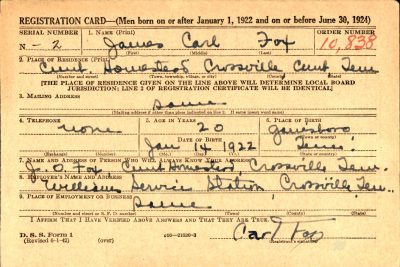 REGISTRATION CARD—(Men born on or after January 1, 1922 and on or before June 30, 1924)
SERIAL NUMBER 1. NAME (Print) ORDER NUMBER
N-2 James Carl Fox 10,838
(First) (Middle) (Last)
2. PLACE OF RESIDENCE (Print)
Cumb. Homestead Crossville Cumb Tenn
(Number and street) (Town, township, village, or city) (County) (State)
[THE PLACE OF RESIDENCE GIVEN ON THE LINE ABOVE WILL DETERMINE LOCAL BOARD
JURISDICTION; LINE 2 OF REGISTRATION CERTIFICATE WILL BE IDENTICAL]
3. MAILING ADDRESS
Same
(Mailing address if other than place indicated on line 2. If same insert word same)
4. TELEPHONE 5. AGE IN YEARS 6. PLACE OF BIRTH
none 20 Gainesboro
DATE OF BIRTH
Jan 14 1922 Tenn
7. NAME AND ADDRESS OF PERSON WHO WILL ALWAYS KNOW YOUR ADDRESS
J. O. Fox Cumb Homestead, Crossville Tenn.
8. EMPLOYER'S NAME AND ADDRESS
Williams Service Station Crossville Tenn.
9. PLACE OF EMPLOYMENT OR BUSINESS
Same
(Number and street or R. F. D. number) (Town) (County) (State)
I AFFIRM THAT I HAVE VERIFIED ABOVE ANSWERS AND THAT THEY ARE TRUE.
D. S. S. Form 1
(Revised 6-1-42) (over) Carl Fox
(Registrant's signature)